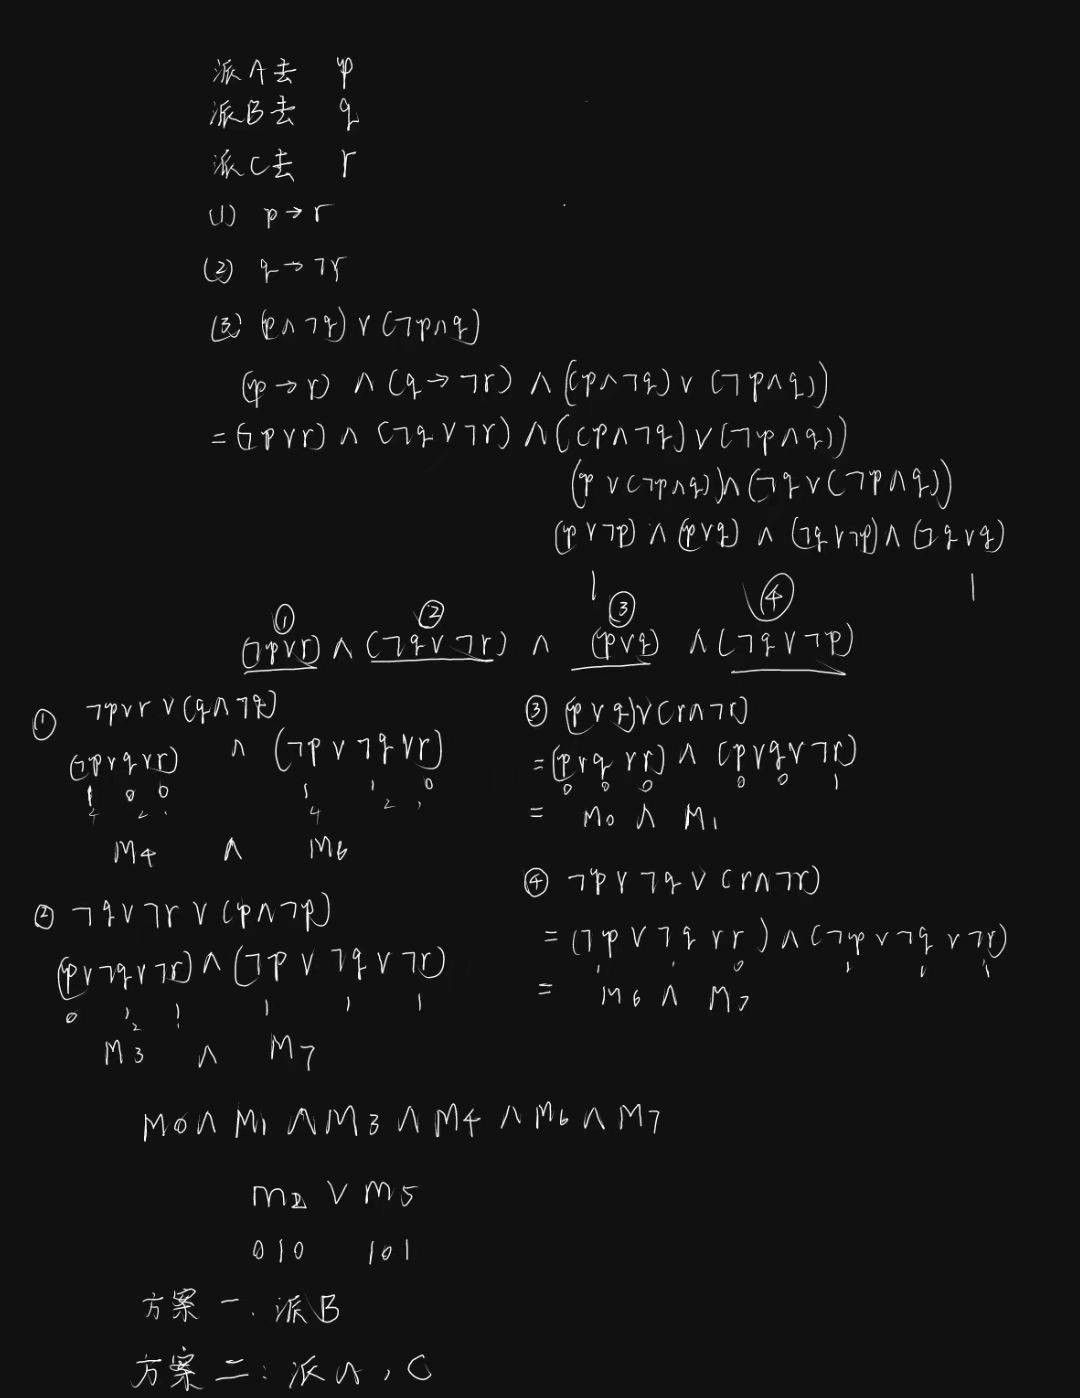 派A去 p
派B去 q
派C去 r
(1) p→r
(2) q→¬r
(3) (p∧¬q)∨(¬p∧q)
(p→r)∧(q→¬r)∧((p∧¬q)∨(¬p∧q))
=(¬p∨r)∧(¬q∨¬r)∧((p∧¬q)∨(¬p∧q))
(p∨(¬p∧q))∧(¬q∨(¬p∧q))
(p∨¬p)∧(p∨q)∧(¬q∨¬p)∧(¬q∨q)
1 1
① ② ③ ④
(¬p∨r)∧(¬q∨¬r)∧(p∨q)∧(¬q∨¬p)
① ¬p∨r∨(q∧¬q)
(¬p∨q∨r)∧(¬p∨¬q∨r)
1 0 0 1 1 0
4 2 1 4 2 1
M4 ∧ M6
② ¬q∨¬r∨(p∧¬p)
(p∨¬q∨¬r)∧(¬p∨¬q∨¬r)
0 1 1 1 1 1
2 1
M3 ∧ M7
③ (p∨q)∨(r∧¬r)
=(p∨q∨r)∧(p∨q∨¬r)
0 0 0 0 0 1
= M0 ∧ M1
④ ¬p∨¬q∨(r∧¬r)
=(¬p∨¬q∨r)∧(¬p∨¬q∨¬r)
1 1 0 1 1 1
= M6 ∧ M7
M0∧M1∧M3∧M4∧M6∧M7
m2∨m5
010 101
方案一.派B
方案二:派A,C